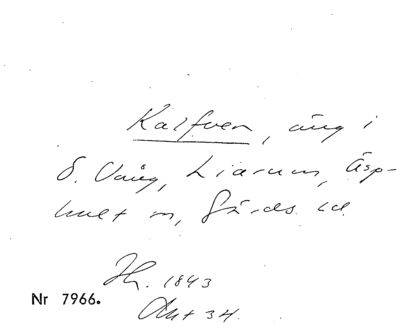 Kalfven, äng i
S. Vång, Liarum, Äsp-
hult sn, Gärds hd
Hh. 1843
Akt 34
Nr 7966.